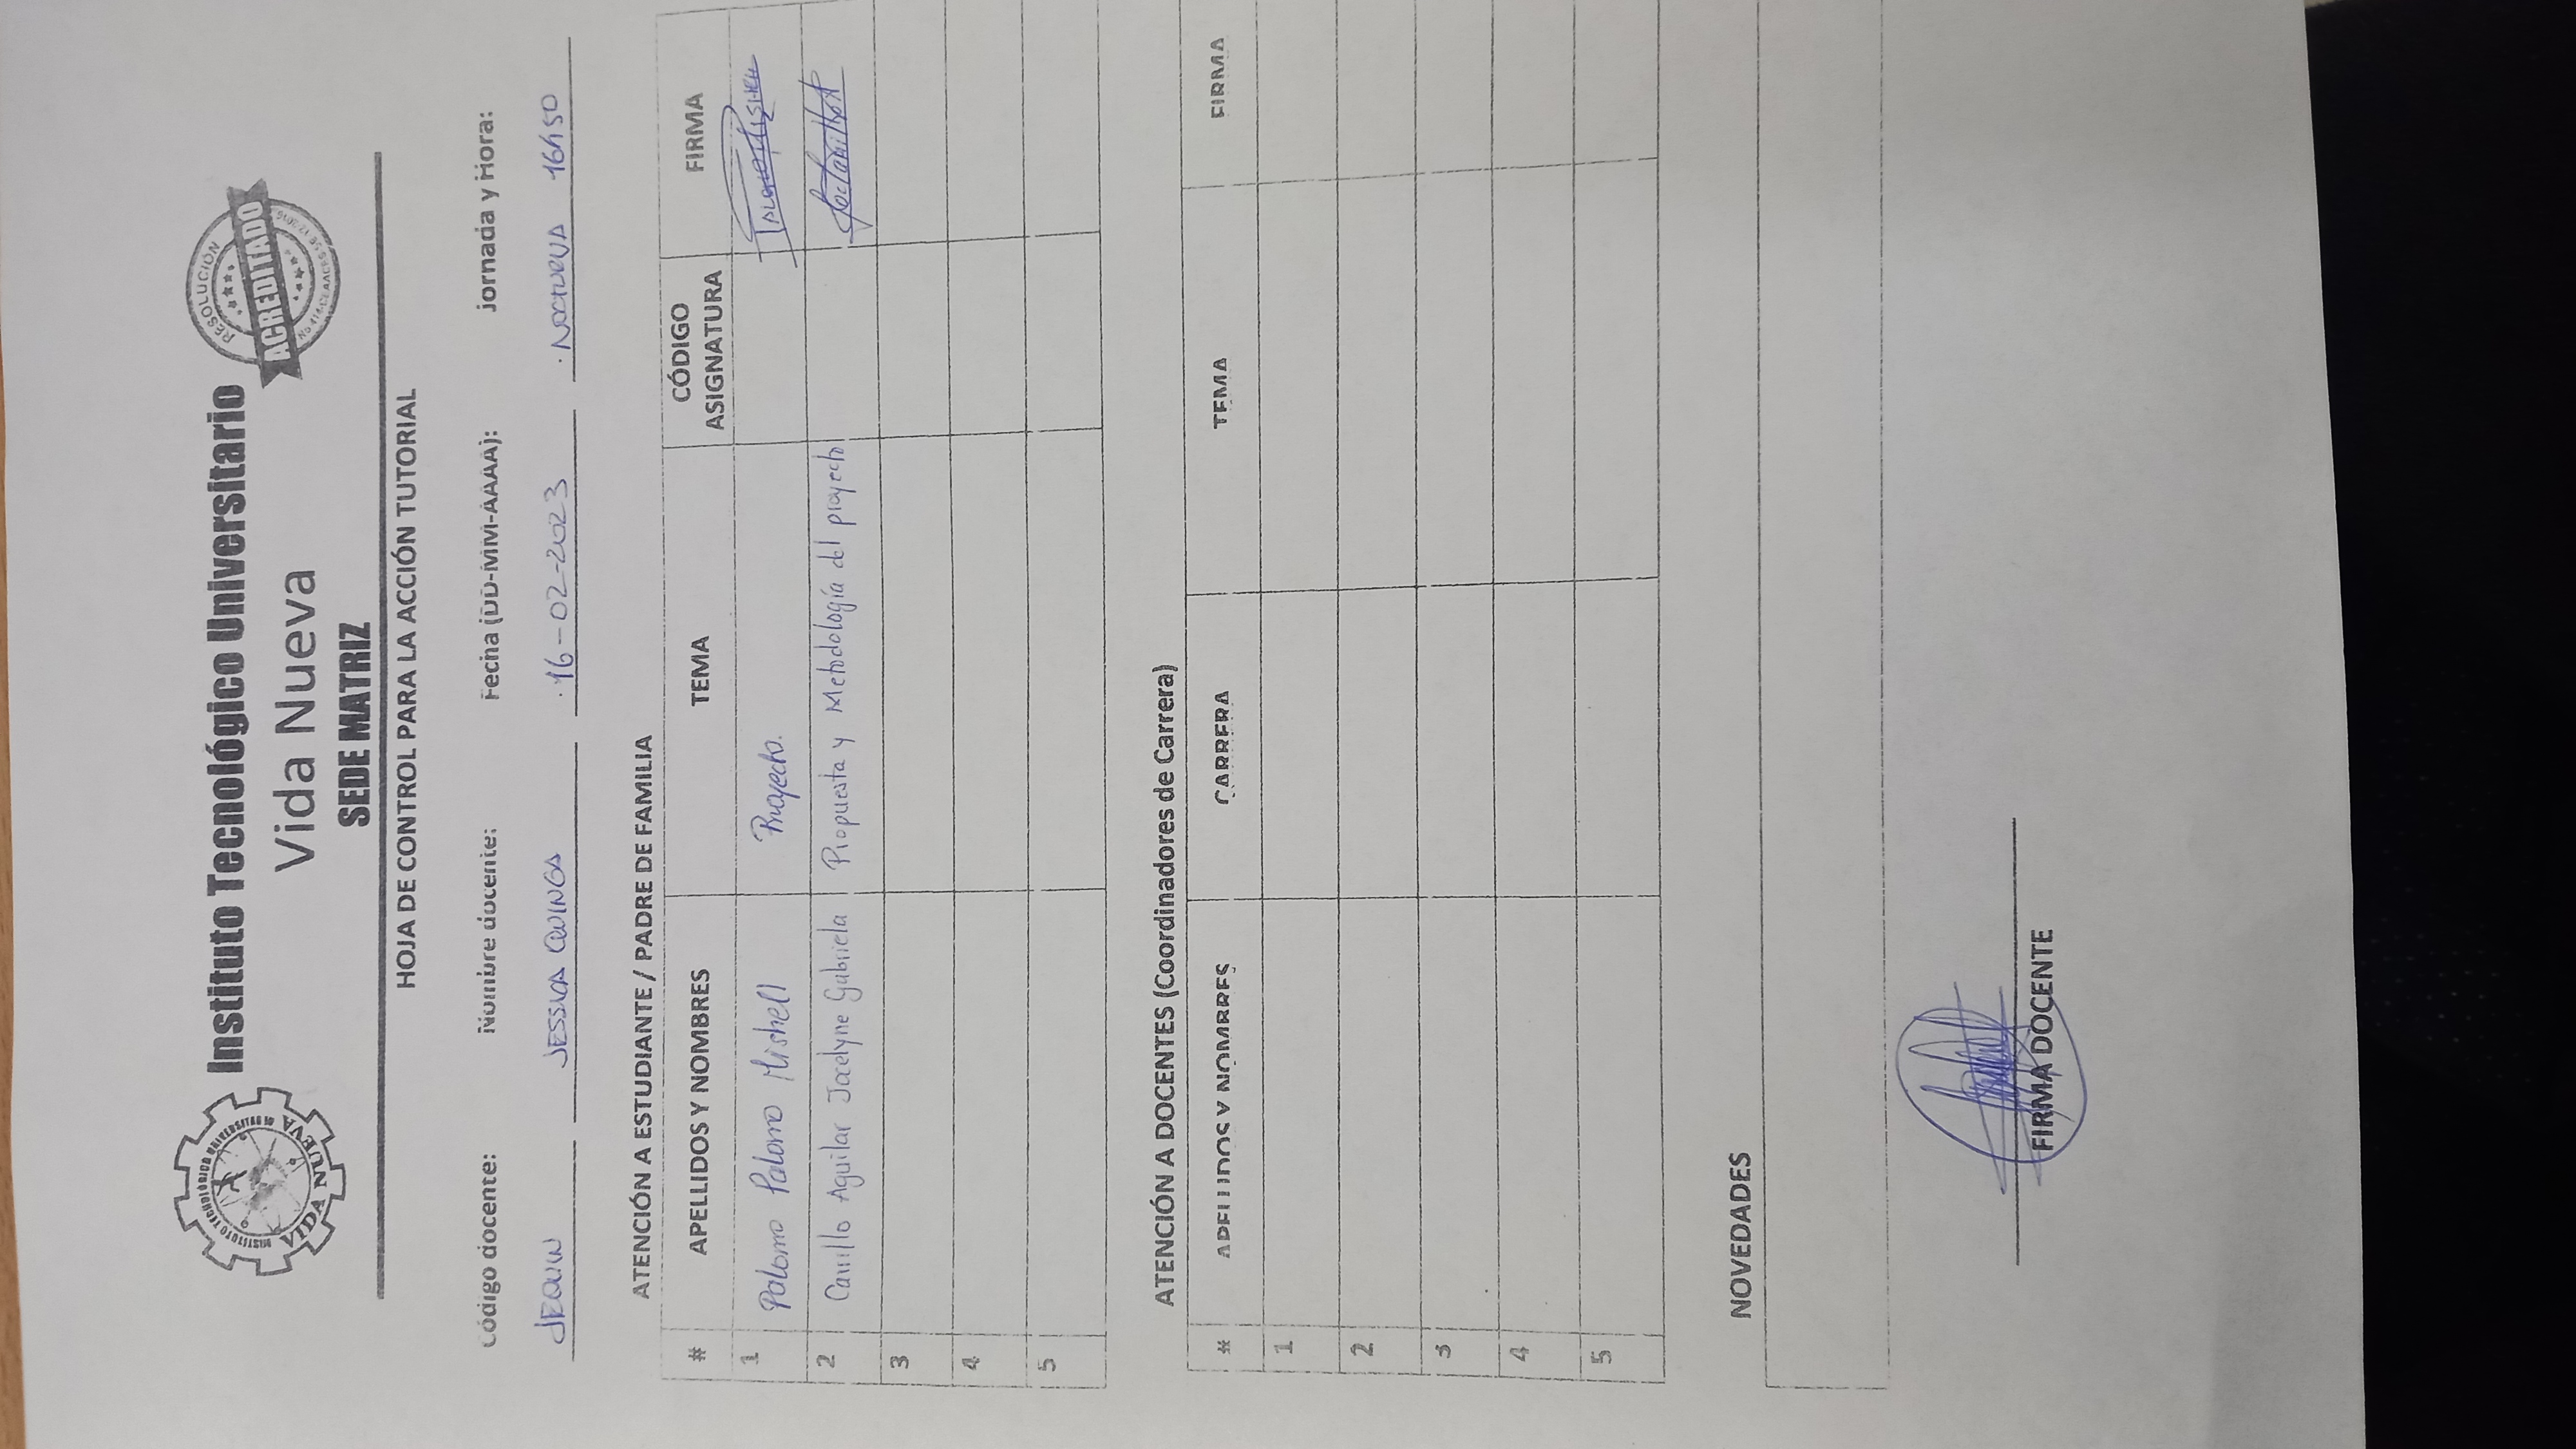 INSTITUTO TECNOLÓGICO UNIVERSITARIO
VIDA NUEVA
Instituto Tecnológico Universitario
Vida Nueva
SEDE MATRIZ
RESOLUCIÓN
ACREDITADO
HOJA DE CONTROL PARA LA ACCIÓN TUTORIAL
Código docente: Nombre docente: Fecha (DD-MM-AAAA): Jornada y Hora:
JEQUIN JESSICA QUINGA 16-02-2023 NOCTURNA 16h50
ATENCIÓN A ESTUDIANTE / PADRE DE FAMILIA
# APELLIDOS Y NOMBRES TEMA CÓDIGO ASIGNATURA FIRMA
1 Palomo Palomo Mishell Proyecto.
2 Carrillo Aguilar Jocelyne Gabriela Propuesta y Metodología del proyecto
3
4
5
ATENCIÓN A DOCENTES (Coordinadores de Carrera)
# APELLIDOS Y NOMBRES CARRERA TEMA FIRMA
1
2
3
4
5
NOVEDADES
FIRMA DOCENTE